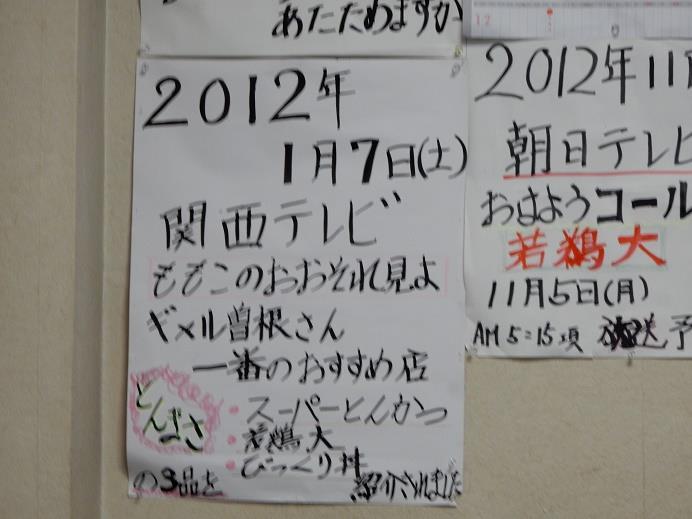 あたためますか
12
2012年
1月7日(土)
関西テレビ
ももこのおおそれ見よ
ギメル曽根さん
一番のおすすめ店
とんまさ
・スーパーとんかつ
・若鶏大
・びっくり丼
の3品を
紹介されました
2012年11
朝日テレビ
おはようコール
若鶏大
11月5日(月)
AM5:15頃 放送予